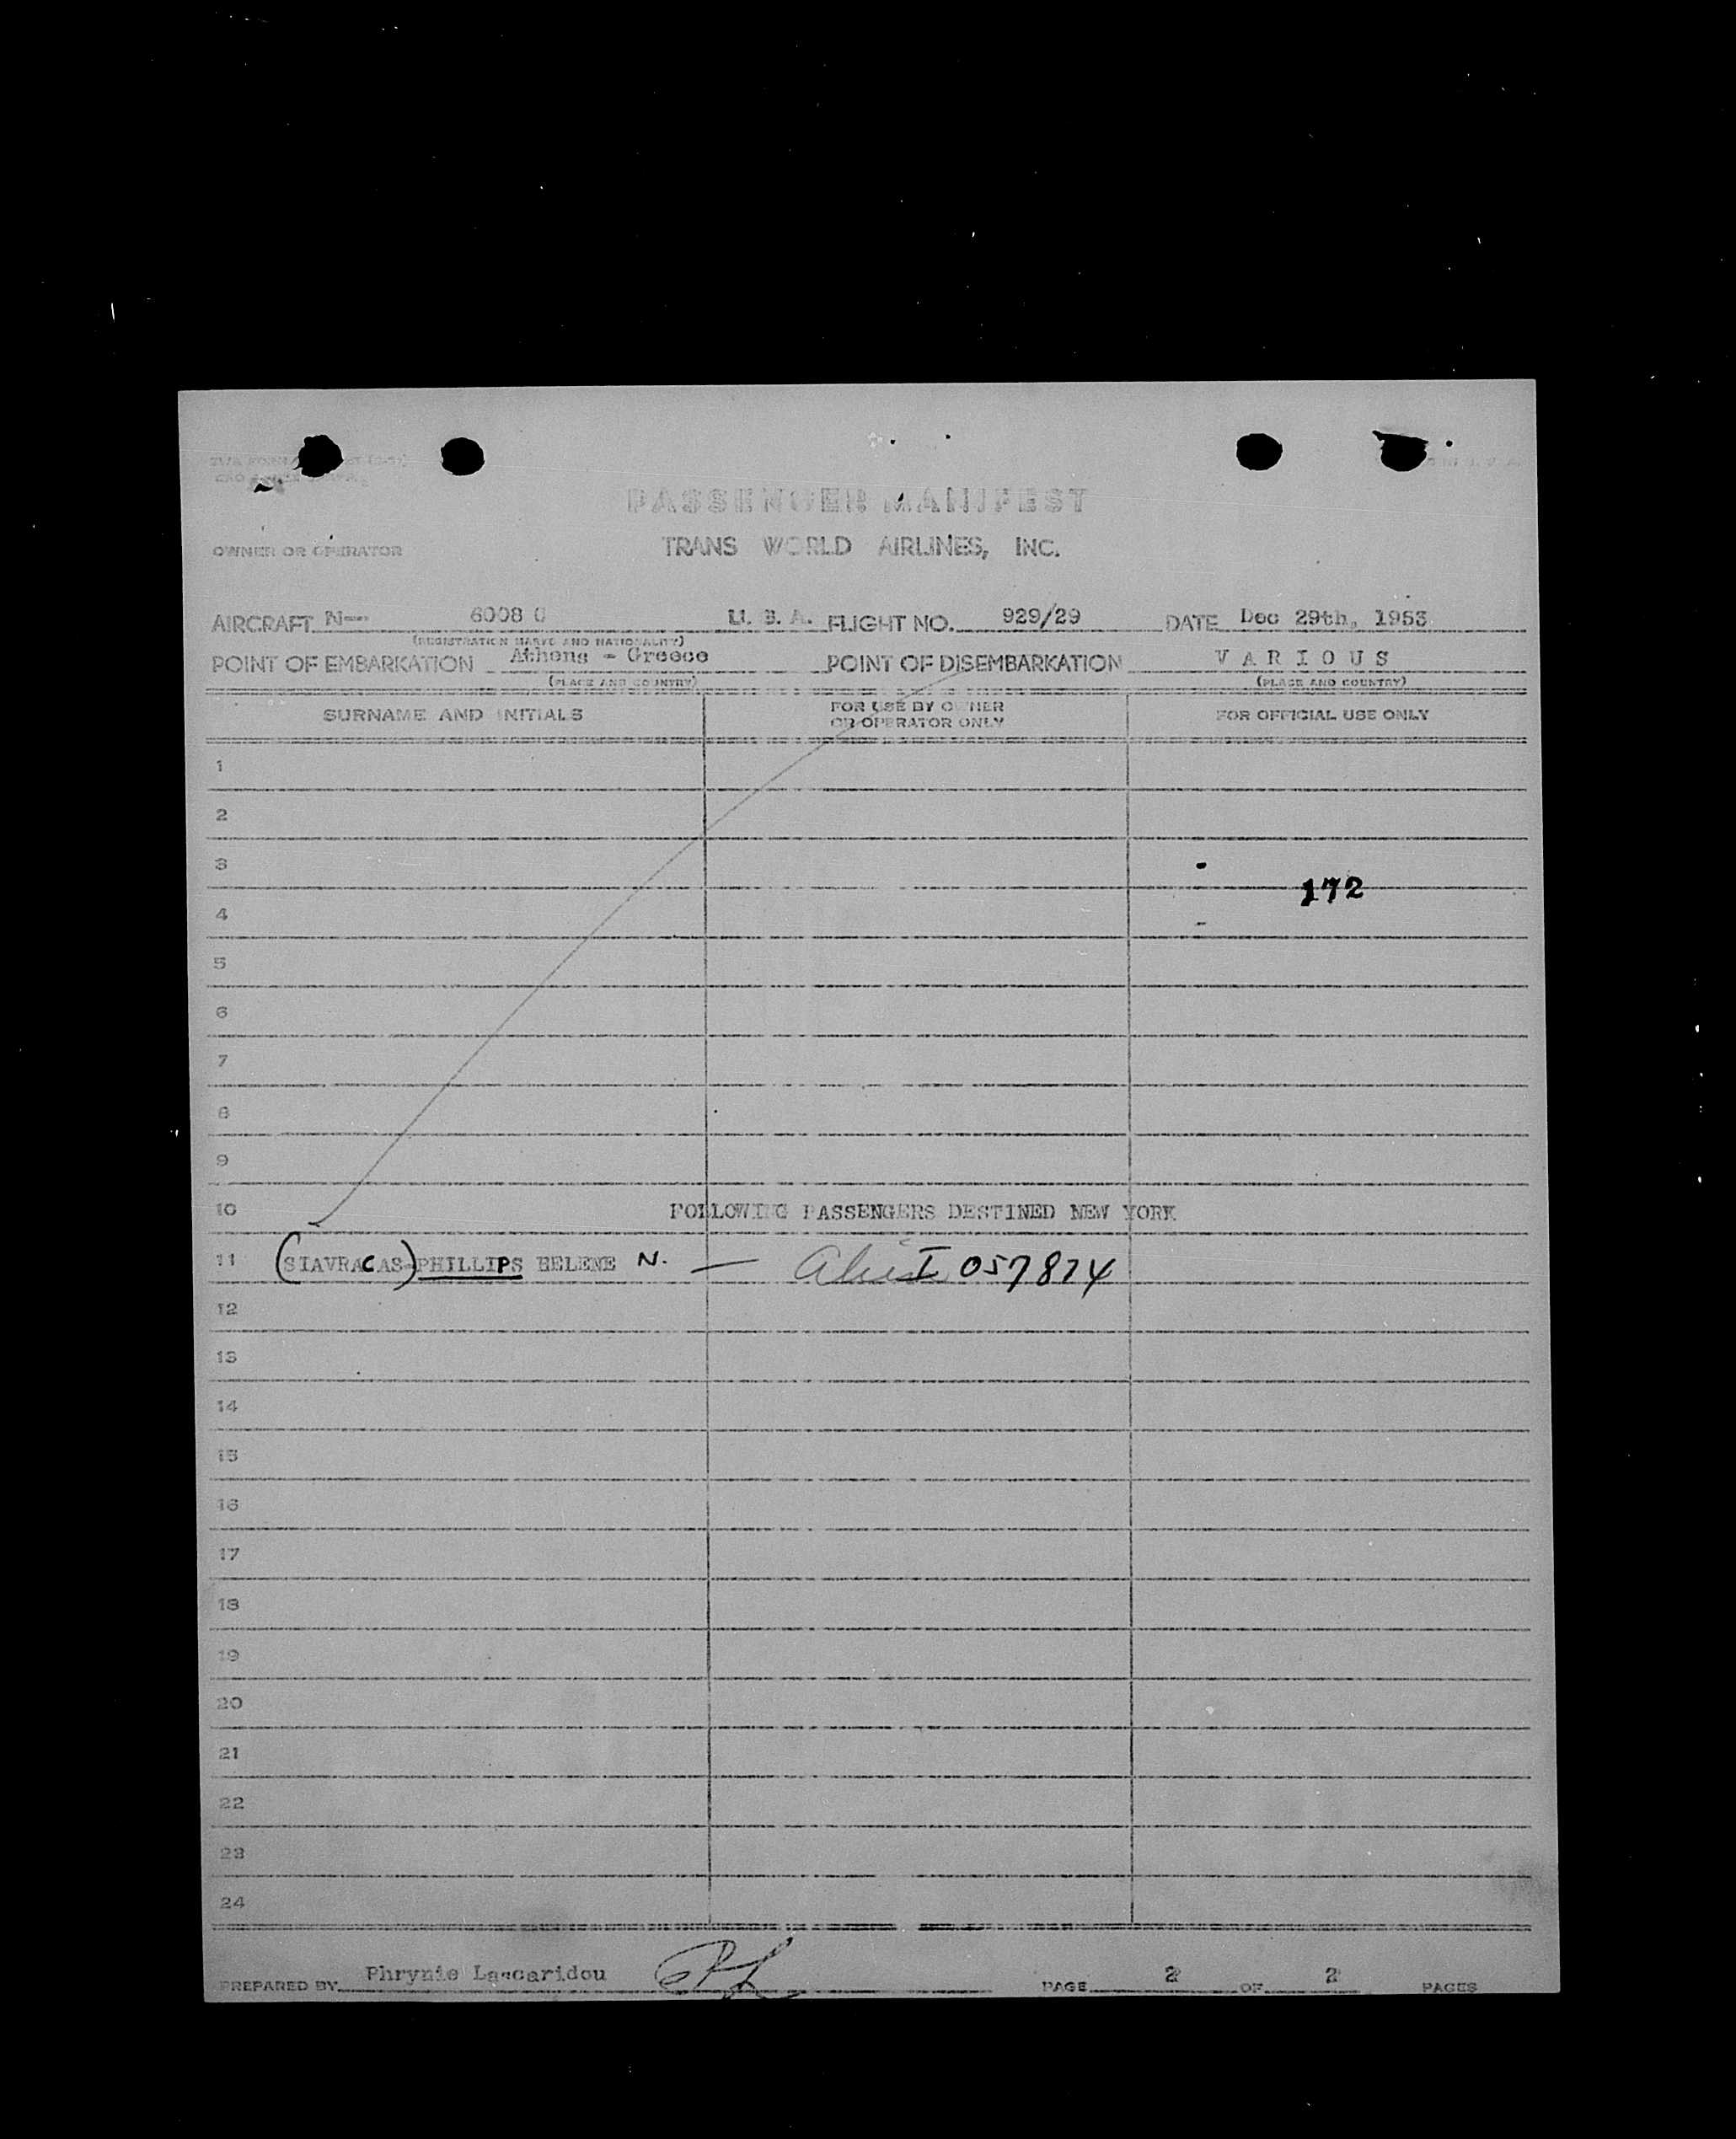 PASSENGER MANIFEST
OWNER OR OPERATOR TRANS WORLD AIRLINES, INC.
AIRCRAFT N-- 6008 C U. S. A. FLIGHT NO. 929/29 DATE Dec 29th, 1953
(REGISTRATION MARKS AND NATIONALITY)
POINT OF EMBARKATION Athens - Greece POINT OF DISEMBARKATION V A R I O U S
(PLACE AND COUNTRY) (PLACE AND COUNTRY)
SURNAME AND INITIALS FOR USE BY OWNER OR OPERATOR ONLY FOR OFFICIAL USE ONLY
1
2
3
172
4
5
6
7
8
9
10 FOLLOWING PASSENGERS DESTINED NEW YORK
11 (SIAVRACAS) PHILLIPS HELENE N. — I 057874
12
13
14
15
16
17
18
19
20
21
22
23
24
PREPARED BY Phrynie Lascaridou PAGE 2 OF 2 PAGES